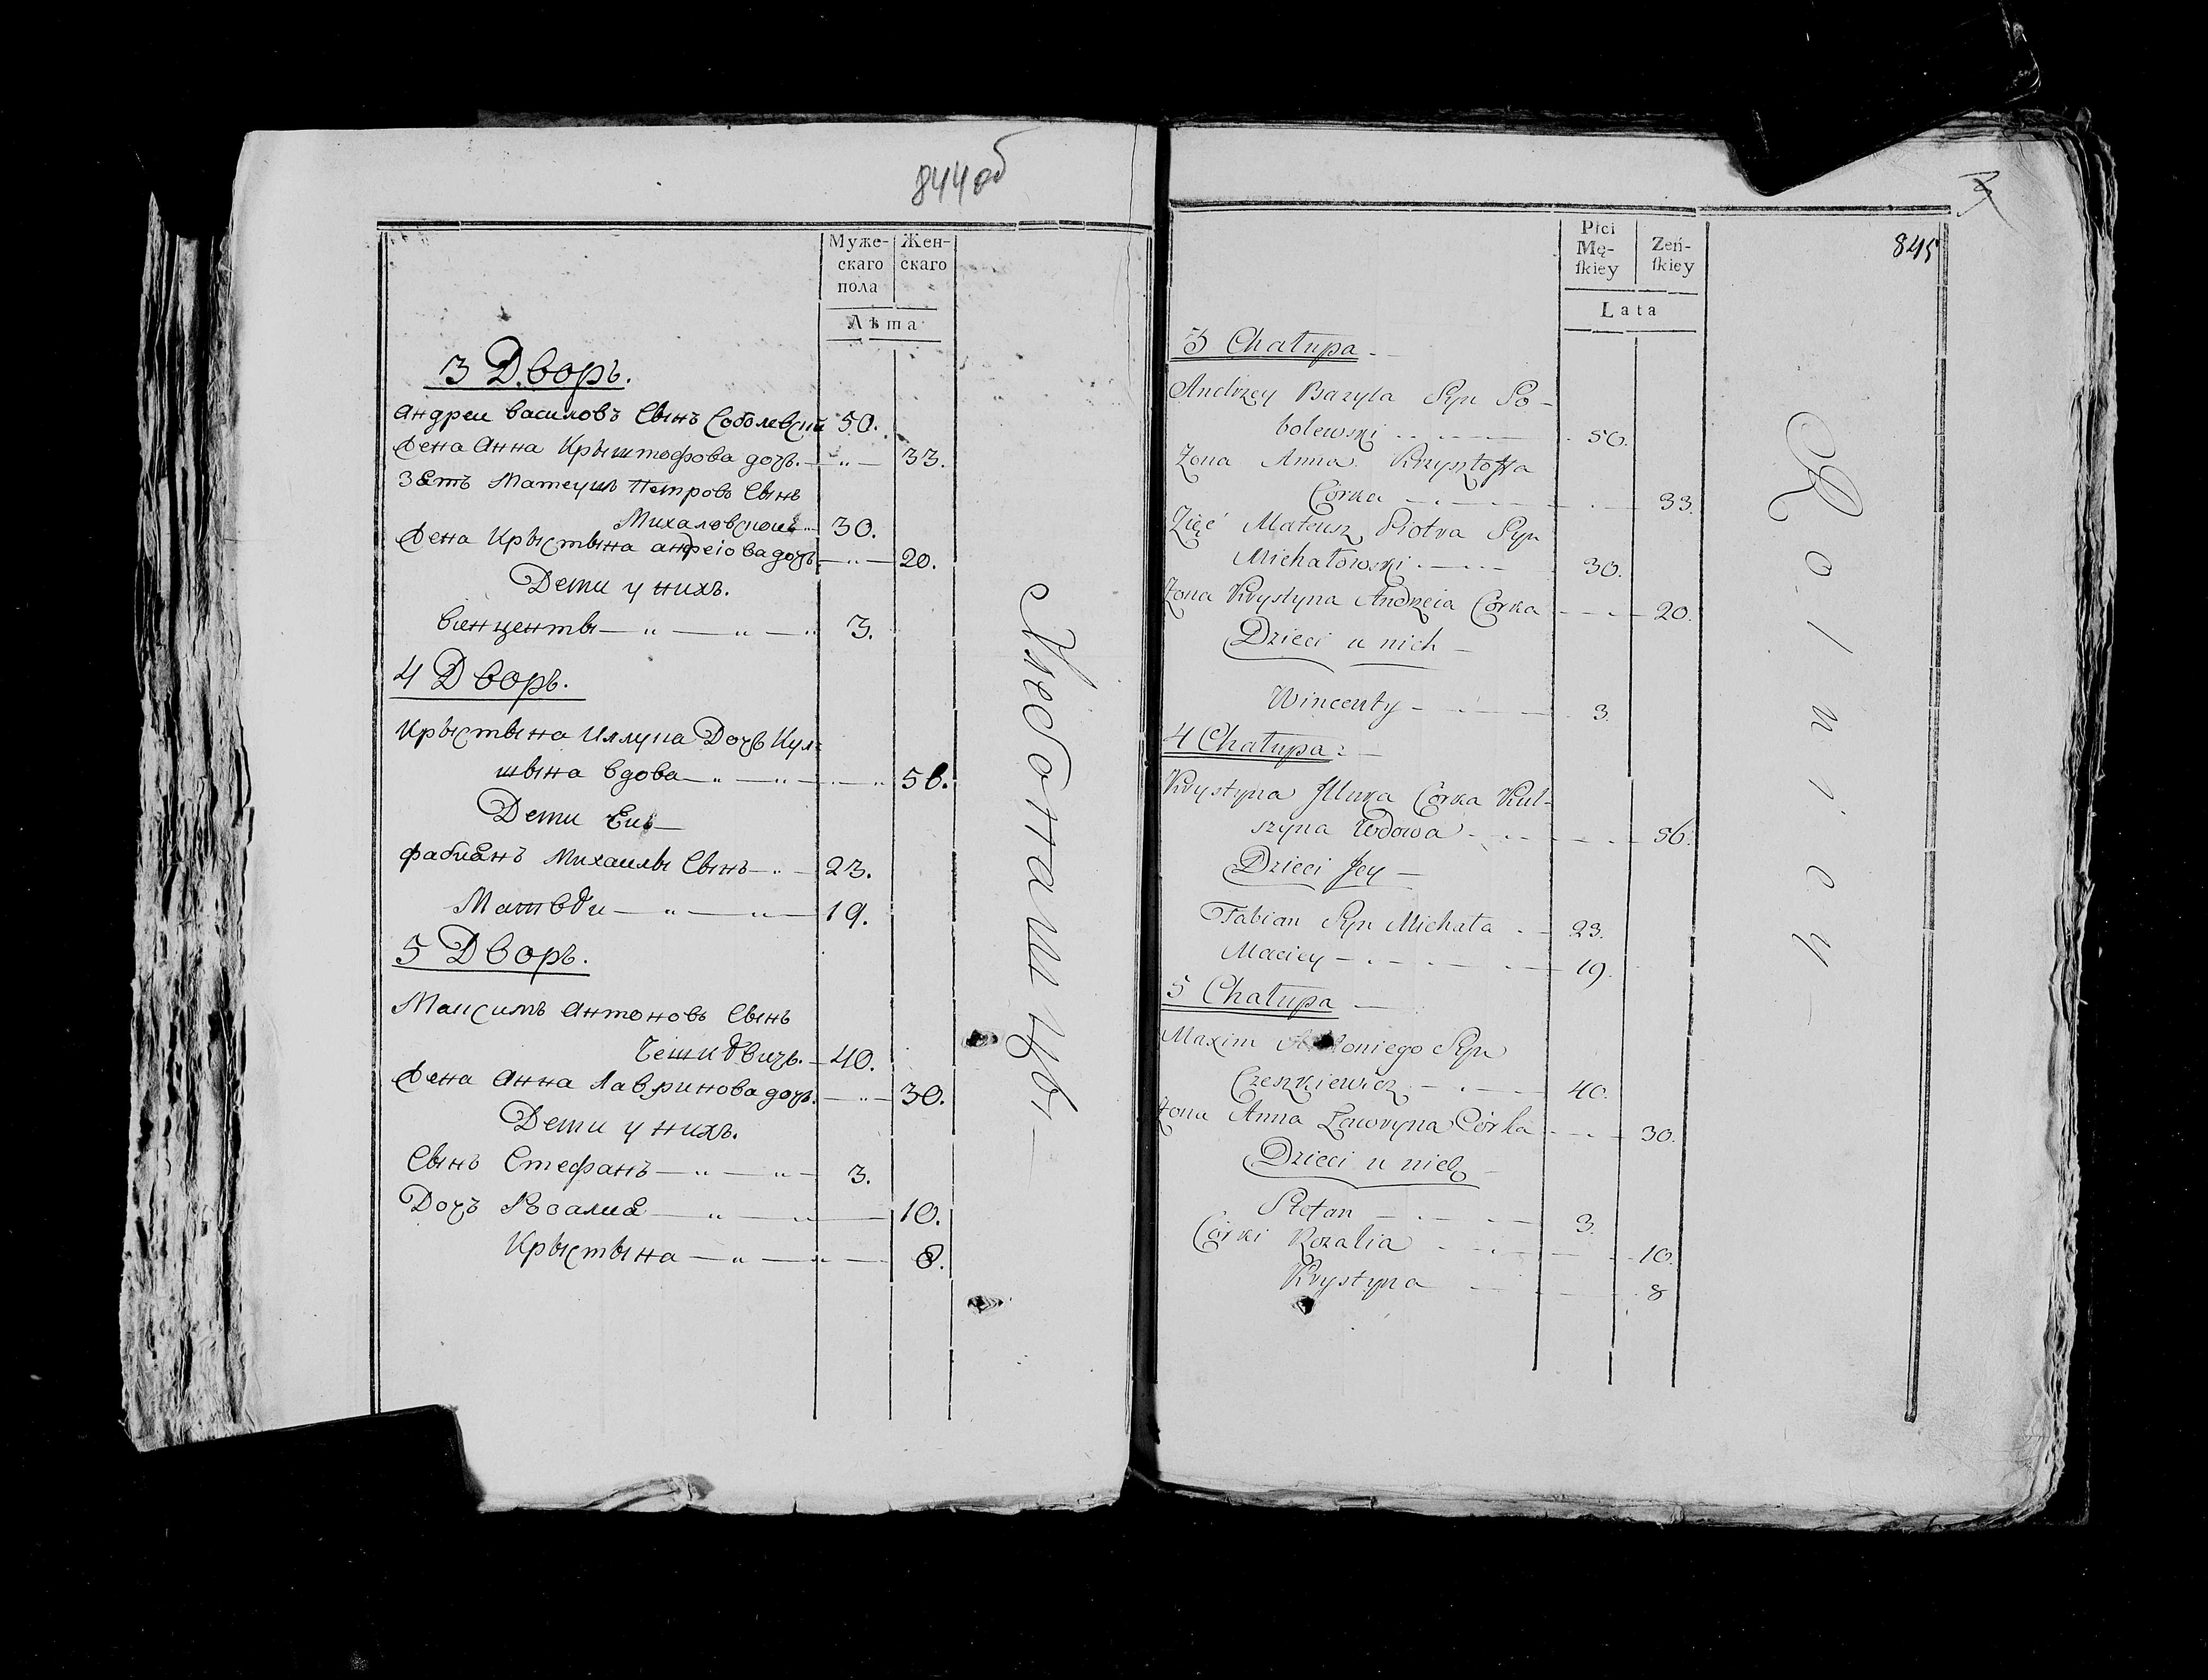 844 об
Муже-
скаго
пола
Жен-
скаго
Лѣта
3 Дворъ.
Андреи Василовъ Сынъ Соболевски 50.
Жена Анна Крыштофова дочъ. 33.
Зеть Матеушъ Петровъ Сынъ
Михаловскои 30.
Жена Крыстына андреіова дочъ 20.
Дети у нихъ.
Винценты 3.
4 Дворъ.
Крыстына Иллука Дочъ Кул-
шына вдова 56.
Дети Еи
Фабиенъ Михаилы Сынъ 23.
Матвѣи 19.
5 Дворъ.
Максимъ Антоновъ Сынъ
40.
Жена Анна Лавринова дочъ. 30.
Дети у нихъ.
Сынъ Стефанъ 3.
Дочъ Розалие 10.
Крыстына 8.
Хлебопашцы
845
Płci
Mę-
ſkiey
Zeń-
ſkiey
Lata
3 Chałupa
Andrzey Bazyla Syn So-
bolewski 50.
Zona Anna Krzysztofa
Corka 33.
Zięć Mateusz Piotra Syn
Michałowski 30.
Zona Krystyna Andrzeia Corka 20.
Dzieci u nich
Wincenty 3.
4 Chałupa
Krystyna Jlluka Corka Kul-
szyna Wdowa 56.
Dzieci Jey
Fabian Syn Michała 23.
Maciey 19.
5 Chałupa
Maxim Antoniego Syn
Czeszkiewicz 40.
Zona Anna Ławryna Córka 30.
Dzieci u nich
Stefan 3.
Córki Rozalia 10.
Krystyna 8
Rolnicy